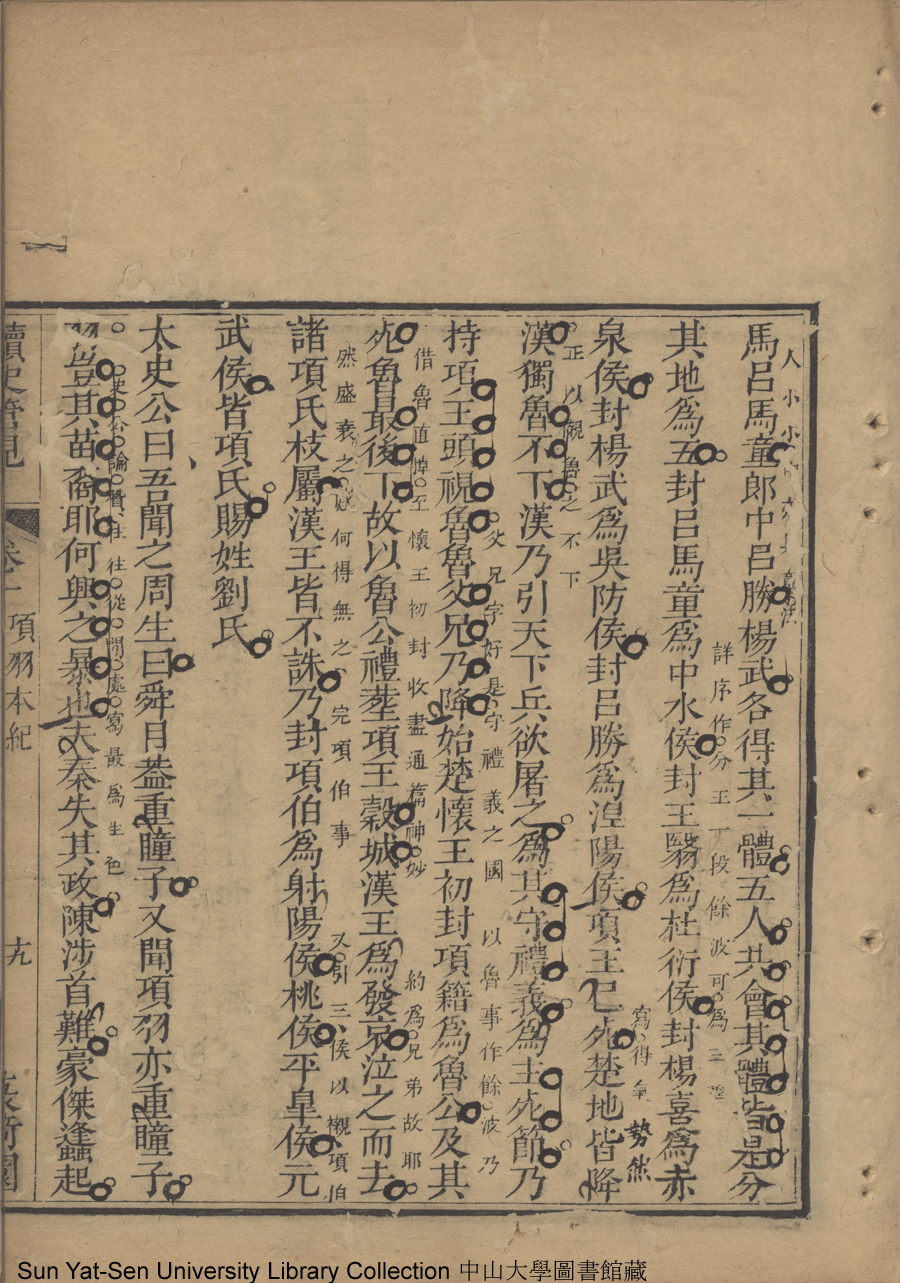 馬呂馬童郎中呂勝楊武各得其一體五人共會其體皆是分
詳序作分王一段餘波可為三
其地爲五封呂馬童爲中水侯封王翳爲杜衍侯封楊喜爲赤
寫得氣勢然
泉侯封楊武爲吳防侯封呂勝爲湼陽侯項王已死楚地皆降
正以襯魯之不下
漢獨魯不下漢乃引天下兵欲屠之爲其守禮義爲主死節乃
父兄字好是守禮義之國 以魯事作餘波乃
持項王頭視魯魯父兄乃降始楚懷王初封項籍爲魯公及其
借魯直悼至懷王初封收盡通篇神妙 約爲兄弟故耶
死魯最後下故以魯公禮塟項王穀城漢王爲發哀泣之而去
然盛衰之感何得無之 完項伯事 又引三侯以襯項伯
諸項氏枝屬漢王皆不誅乃封項伯爲射陽侯桃侯平臯侯元
武侯皆項氏賜姓劉氏
太史公曰吾聞之周生曰舜目葢重瞳子又聞項羽亦重瞳子
史公論贊往往從閒處寫最爲生色
羽豈其苗裔耶何興之暴也夫秦失其政陳涉首難豪傑蠭起
讀史管見 卷一 項羽本紀 十九
Sun Yat-Sen University Library Collection 中山大學圖書館藏